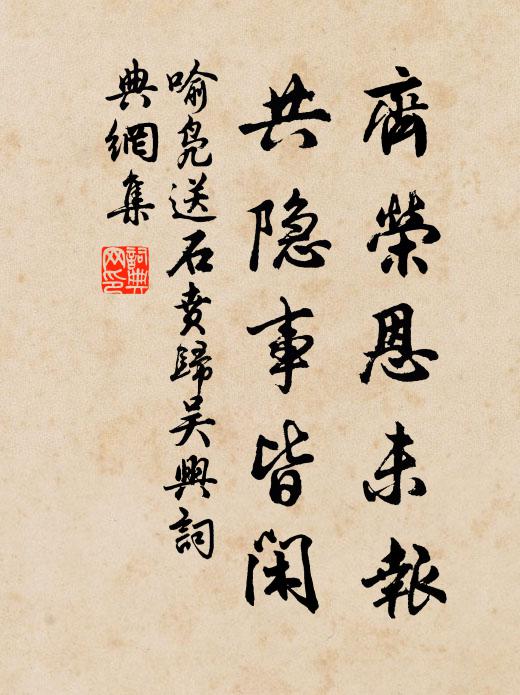 齊榮恩未報
共隐事皆閑
喻鳧送石賁歸吳興詞
典網集
詞典網印